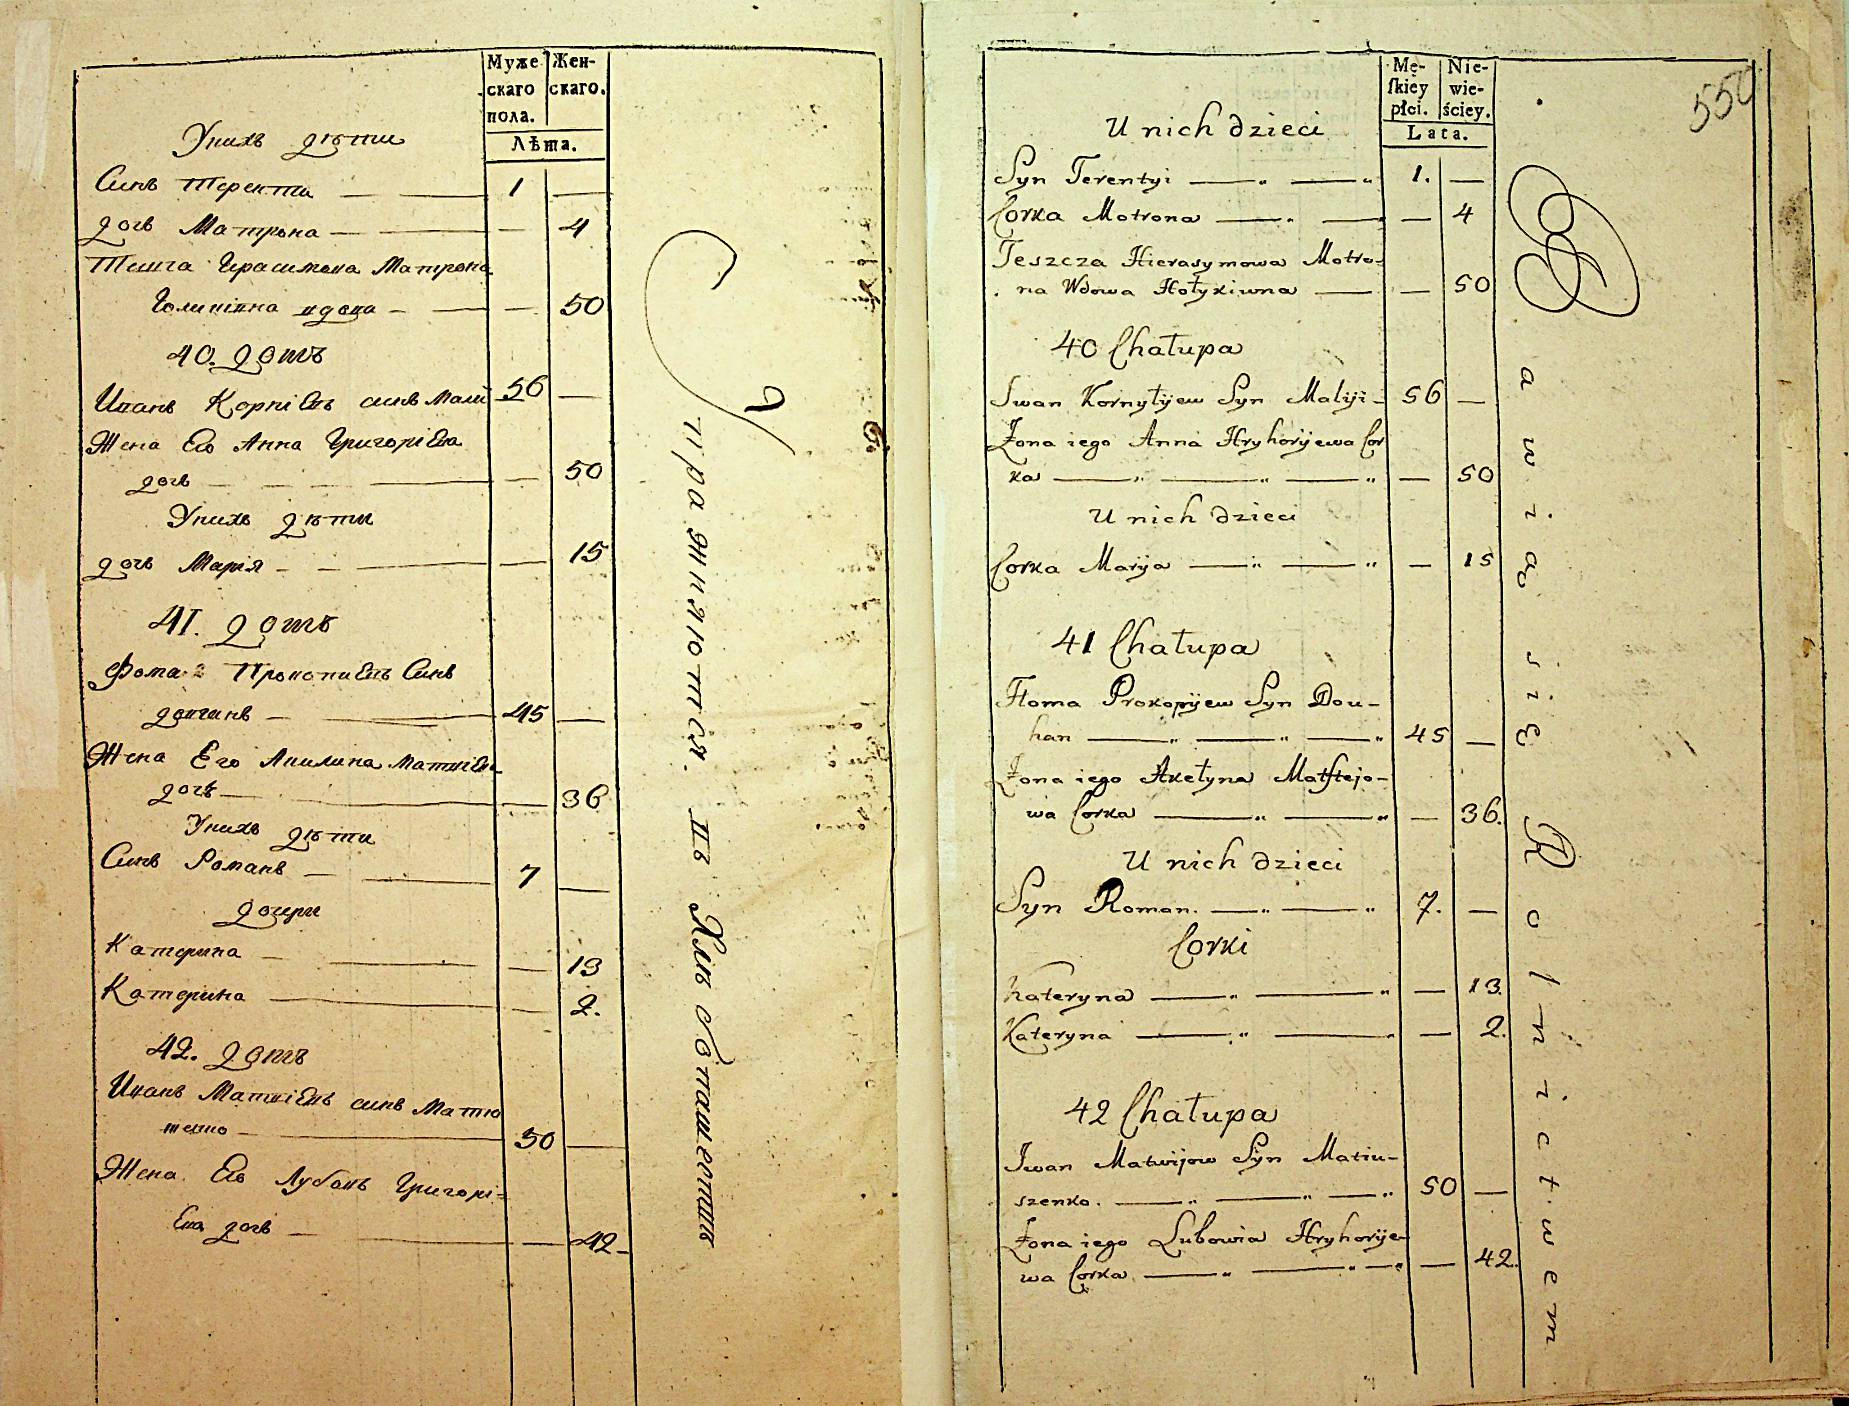 Муже
скаго
пола.
Жен-
скаго.
Лѣта.
Унихъ дѣти
Синъ Терентии 1
дочь Матрона 4
Тешча Герасимова Матрона
Голикіѵна вдова 50
40. домъ
Иванъ Корніевъ синъ Малій 56
Жена Его Анна Григоріева
дочь 50
Унихъ дѣти
дочь Марія 15
41. домъ
Фома Прокопиевъ Синъ
довганъ 45
Жена Его Акилина Матвіева
дочь 36
Унихъ дѣти
Синъ Романъ 7
дочери
Катерина 13
Катерина 2.
42. домъ
Иванъ Матвіевъ синъ Матю
шенко 50
Жена Его Лубовъ Григорі=
Ева дочь 42
Упражняются въ Хлѣбопашествѣ
Mę-
skiey
płci.
Nie-
wie-
ściey.
Lata.
550
U nich dzieci
Syn Terentyi 1.
Corka Motrona 4
Teszcza Hierasymowa Motro-
na Wdowa Hołykiwna 50
40 Chałupa
Iwan Kornyłijew Syn Maliji 56
Żona iego Anna Hryhorijewa Cor
ka 50
U nich dzieci
Corka Marija 15
41 Chałupa
Homa Prokopijew Syn Dou-
han 45
Żona iego Akełyna Matftejo-
wa Corka 36.
U nich dzieci
Syn Roman. 7.
Corki
Kateryna 13.
Kateryna 2.
42 Chałupa
Iwan Matwijow Syn Matiu-
szenko. 50
Żona iego Lubowia Hryhorije-
wa Corka 42.
Bawią się Rolnictwem